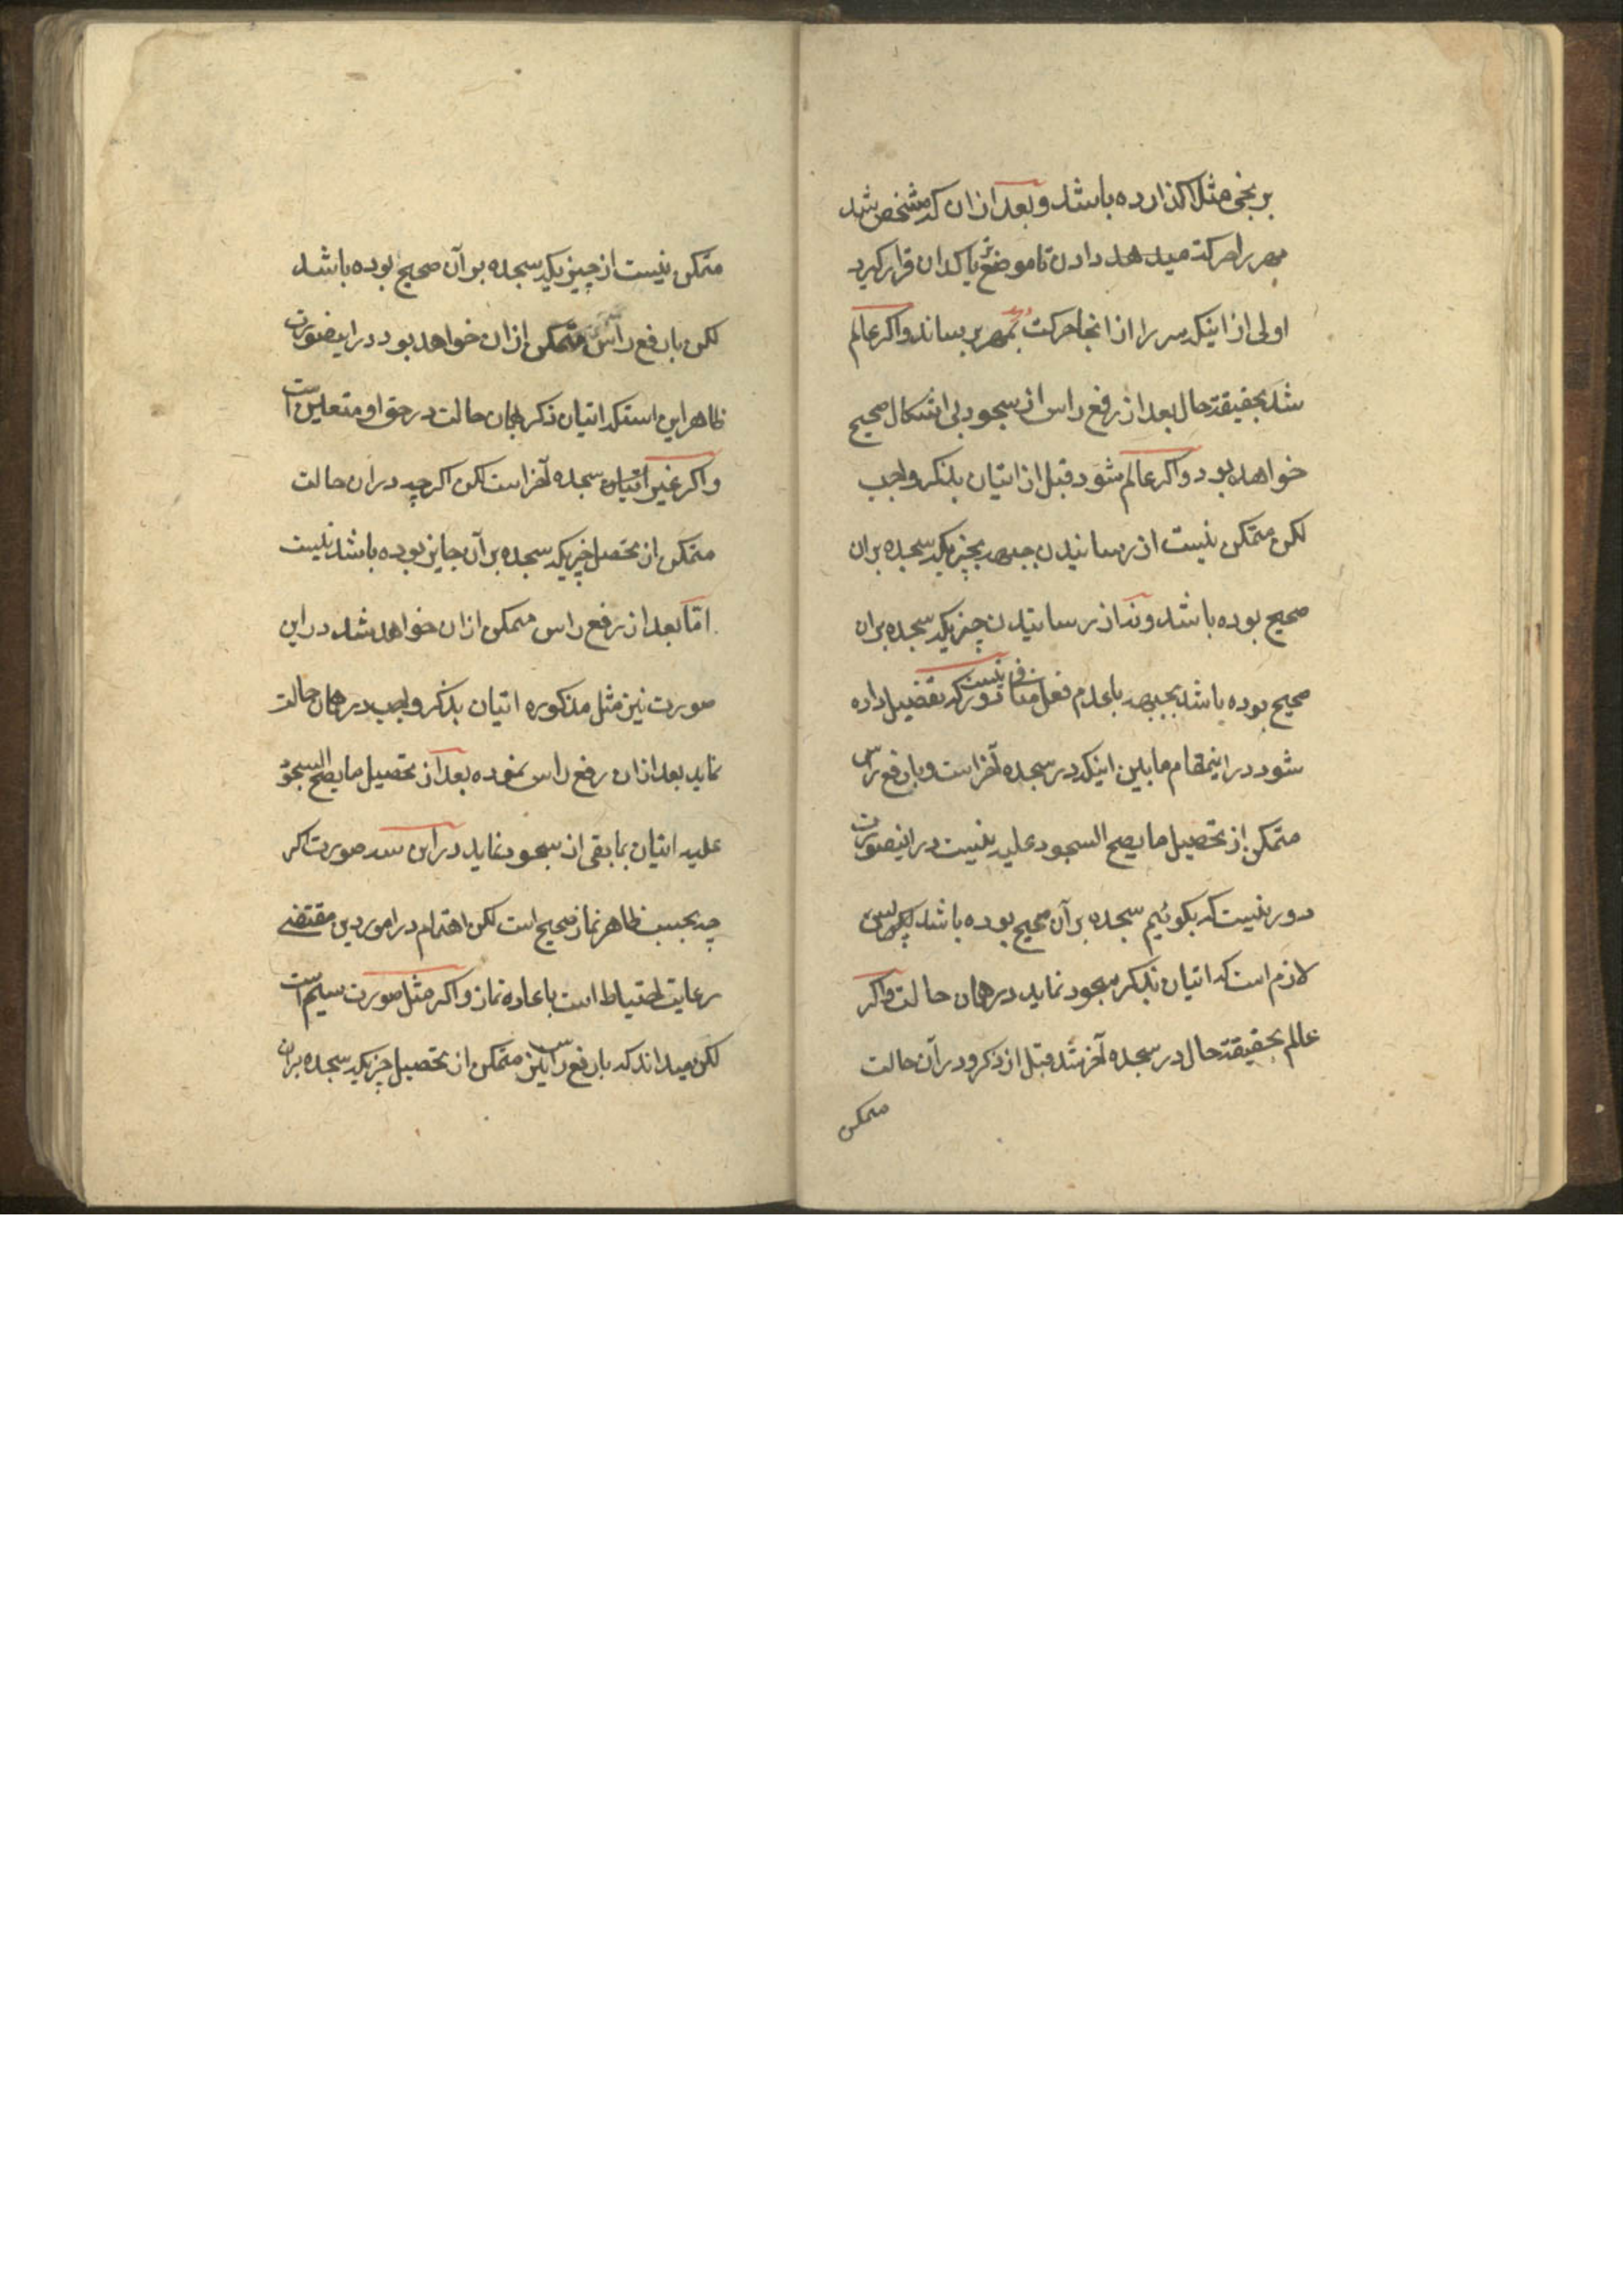 برنجی مثلا کذارده باشد و بعد از ان که مشخص شد
مهر را حرکت میدهد دادن تا موضع پاک دران قرار کیرد
اولی از اینکه سر را از انجا حرکت بمهر برساند و اکر عالم
شد بحقیقة حال بعد از رفع راس از سجود بی اشکال صحیح
خواهد بود و اکر عالم شود قبل از اتیان بذکر واجب
لکن متمکن نیست از رسانیدن جبهه بچیزیکه سجده بران
صحیح بوده باشد و نه از رسانیدن چیزیکه سجده بران
صحیح بوده باشد بجبهه با عدم فعل منافی دور نیست که تفصیل داده
شود در اینمقام مابین اینکه در سجده آخر است و با رفع راس
متمکن از تحصیل ما یصح السجود علیه نیست در اینصورت
دور نیست که بکوئیم سجده بر آن صحیح بوده باشد پس
لازم است که اتیان بذکر سجود نماید در همان حالت و اکر
عالم بحقیقة حال در سجده آخر شد قبل از ذکر و در آن حالت
متمکن
متمکن نیست از چیزیکه سجده بر آن صحیح بوده باشد
لکن با رفع راس متمکن از ان خواهد بود در اینصورت
ظاهر این است که اتیان ذکر بهمان حالت در حق او متعین است
و اکر غیر اتیان سجده آخر است لکن اکر چه در ان حالت
متمکن از تحصیل چیزیکه سجده بر آن جایز بوده باشد نیست
امّا بعد از رفع راس متمکن از ان خواهد شد در این
صورت نیز مثل مذکوره اتیان بذکر واجب در همان حالت
نماید بعد از ان رفع راس نموده بعد از تحصیل ما یصح السجود
علیه اتیان بما بقی از سجود نماید در این سه صورت اکر
چه بحسب ظاهر نماز صحیح است لکن اهتمام در امور دین مقتضی
رعایت احتیاط است باعاده نماز و اکر مثل صورت سیم است
لکن میداند که با رفع راس نیز متمکن از تحصیل چیزیکه سجده بران